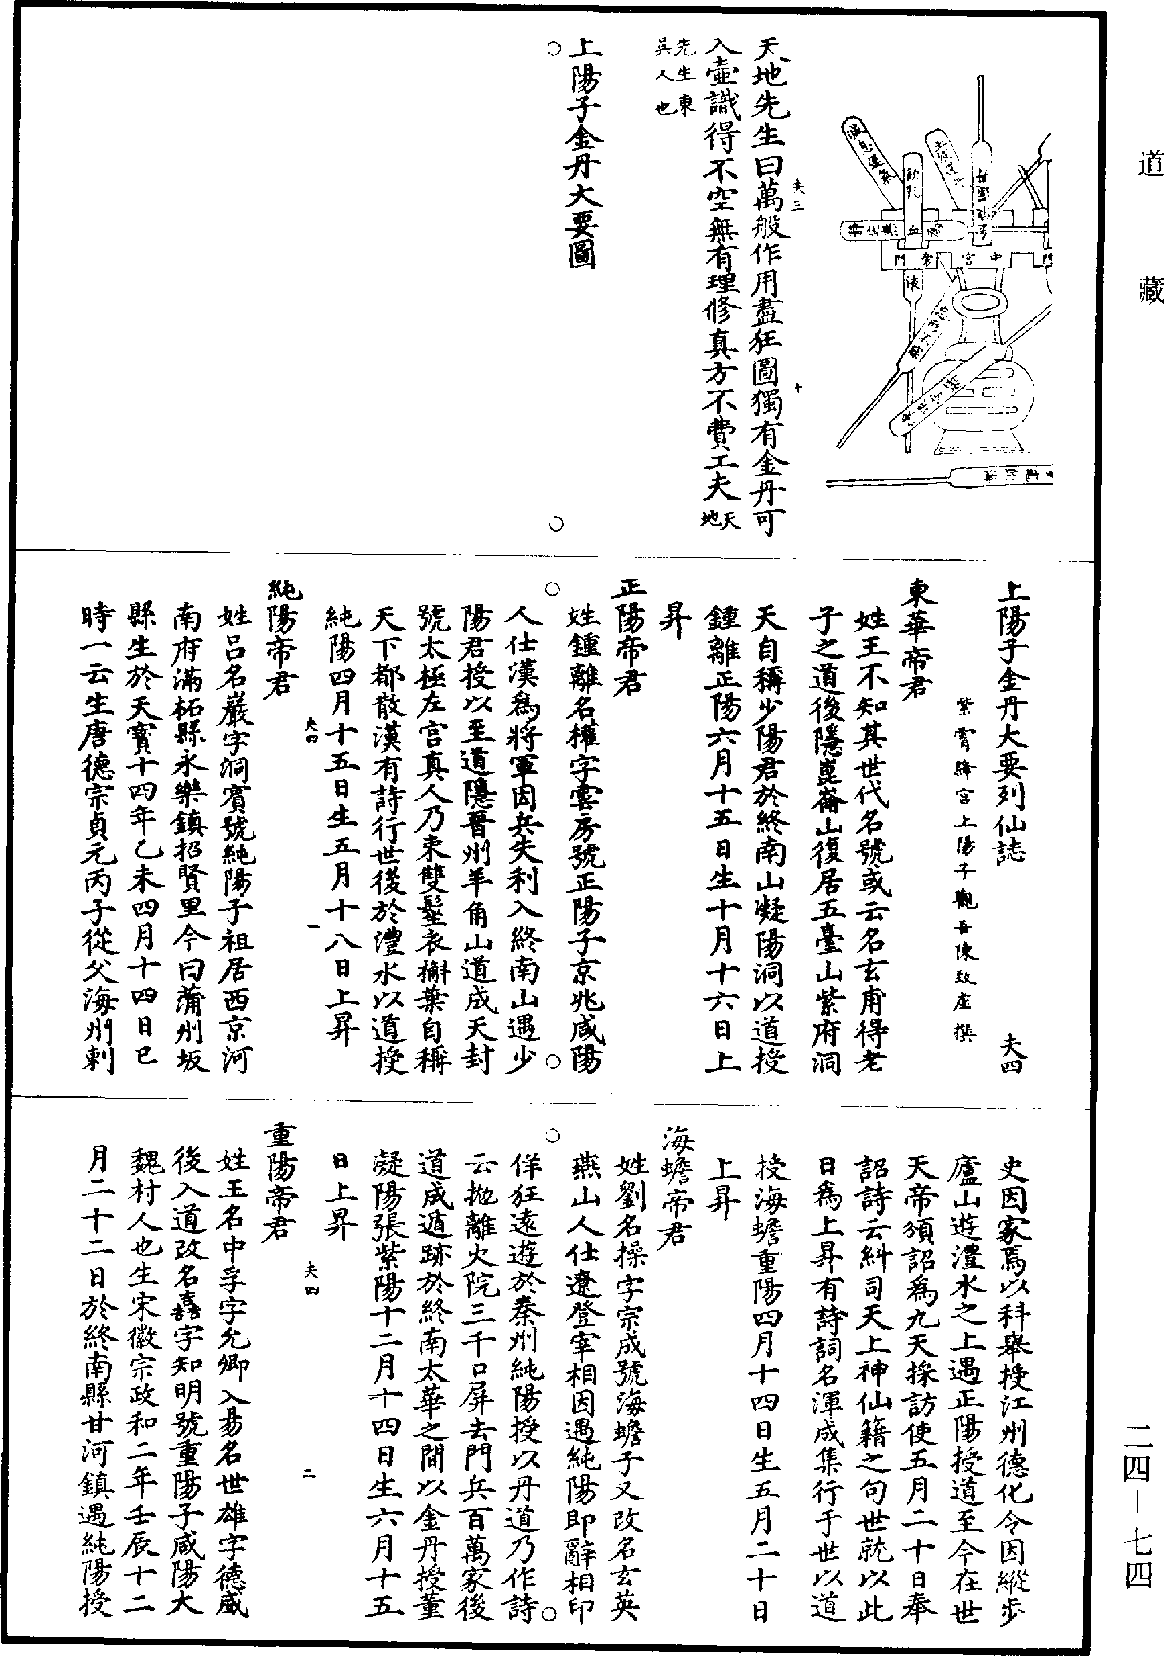 道藏
天地先生曰萬般作用盡狂圖獨有金丹可
入壺識得不空無有理修真方不費工夫天地
先生東
吳人也
夫三
十
上陽子金丹大要圖
上陽子金丹大要列仙誌
夫四
紫霄絳宮上陽子觀吾陳致虛撰
東華帝君
姓王不知其世代名號或云名玄甫得老
子之道後隱崑崙山復居五臺山紫府洞
天自稱少陽君於終南山凝陽洞以道授
鍾離正陽六月十五日生十月十六日上
昇
正陽帝君
姓鍾離名權字雲房號正陽子京兆咸陽
人仕漢為將軍因兵失利入終南山遇少
陽君授以至道隱晉州羊角山道成天封
號太極左宮真人乃束雙髻衣槲葉自稱
天下都散漢有詩行世後於澧水以道授
純陽四月十五日生五月十八日上昇
夫四
一
純陽帝君
姓呂名巖字洞賓號純陽子祖居西京河
南府滿柘縣永樂鎮招賢里今曰蒲州坂
縣生於天寶十四年乙未四月十四日巳
時一云生唐德宗貞元丙子從父海州刺
史因家焉以科舉授江州德化令因縱步
廬山遊澧水之上遇正陽授道至今在世
天帝頒詔為九天採訪使五月二十日奉
詔詩云糾司天上神仙籍之句世就以此
日為上昇有詩詞名渾成集行于世以道
授海蟾重陽四月十四日生五月二十日
上昇
海蟾帝君
姓劉名操字宗成號海蟾子又改名玄英
燕山人仕遼登宰相因遇純陽即辭相印
佯狂遠遊於秦州純陽授以丹道乃作詩
云拋離火院三千口屏去門兵百萬家後
道成遁跡於終南太華之間以金丹授董
凝陽張紫陽十二月十四日生六月十五
日上昇
夫四
二
重陽帝君
姓王名中孚字允卿入昜名世雄字德威
後入道改名嚞字知明號重陽子咸陽大
魏村人也生宋徽宗政和二年壬辰十二
月二十二日於終南縣甘河鎮遇純陽授
二四—七四